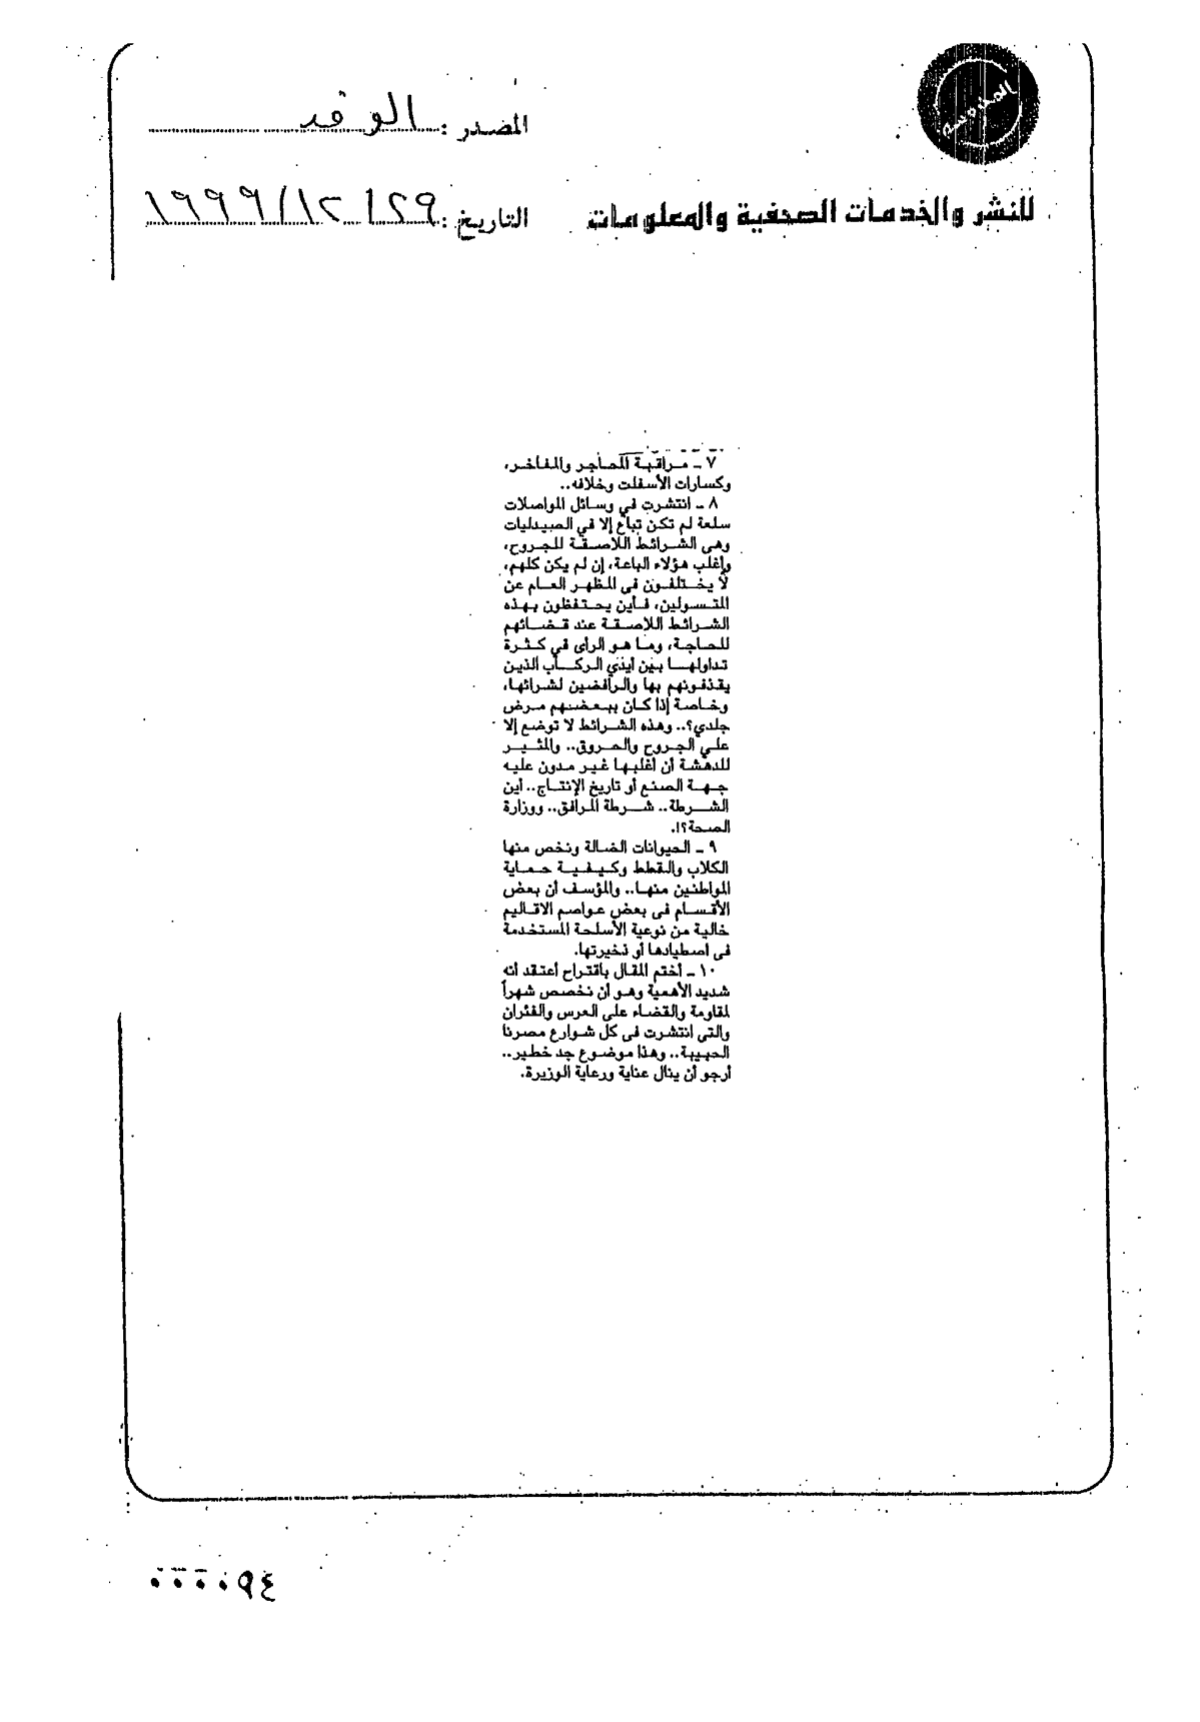 المصدر : الوفد
المحروسة
للنشر والخدمات الصحفية والمعلومات
التاريخ : ١٩٩٩/١٢/٢٩
٧ ـ مراقبة المحاجر والمفاخر،
وكسارات الأسفلت وخلافه..
٨ ـ انتشرت في وسائل المواصلات
سلعة لم تكن تباع إلا في الصيدليات
وهى الشرائط اللاصقة للجروح،
وأغلب هؤلاء الباعة، إن لم يكن كلهم،
لا يختلفون فى المظهر العام عن
المتسولين، فأين يحتفظون بهذه
الشرائط اللاصقة عند قضائهم
للحاجة، وما هو الرأى في كثرة
تداولها بين أيدي الركاب الذين
يقذفونهم بها والرافضين لشرائها،
وخاصة إذا كان ببعضهم مرض
جلدي؟.. وهذه الشرائط لا توضع إلا
علي الجروح والحروق.. والمثير
للدهشة أن أغلبها غير مدون عليه
جهة الصنع أو تاريخ الإنتاج.. أين
الشرطة.. شرطة المرافق.. ووزارة
الصحة؟!.
٩ ـ الحيوانات الضالة ونخص منها
الكلاب والقطط وكيفية حماية
المواطنين منها.. والمؤسف أن بعض
الأقسام فى بعض عواصم الاقاليم
خالية من نوعية الأسلحة المستخدمة
فى اصطيادها أو ذخيرتها.
١٠ ـ أختم المقال باقتراح أعتقد أنه
شديد الأهمية وهو أن نخصص شهراً
لمقاومة والقضاء على العرس والفئران
والتي انتشرت فى كل شوارع مصرنا
الحبيبة.. وهذا موضوع جد خطير..
أرجو أن ينال عناية ورعاية الوزيرة.
٠٠٠٠٩٤